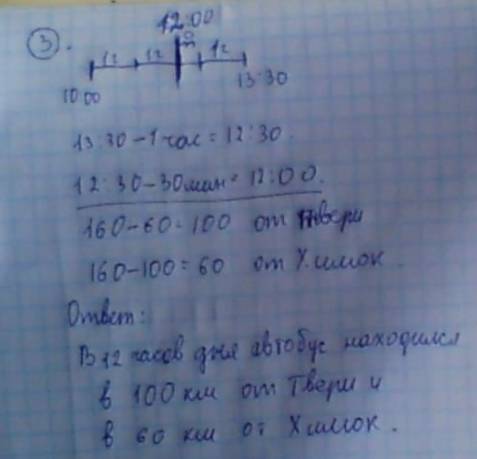 3.
12:00
1ч 1ч 1ч
10:00 13:30
13:30-1час=12:30.
12:30-30мин=12:00.
160-60=100 от Твери
160-100=60 от Химок.
Ответ:
В 12 часов дня автобус находился
в 100 км от Твери и
в 60 км от Химок.